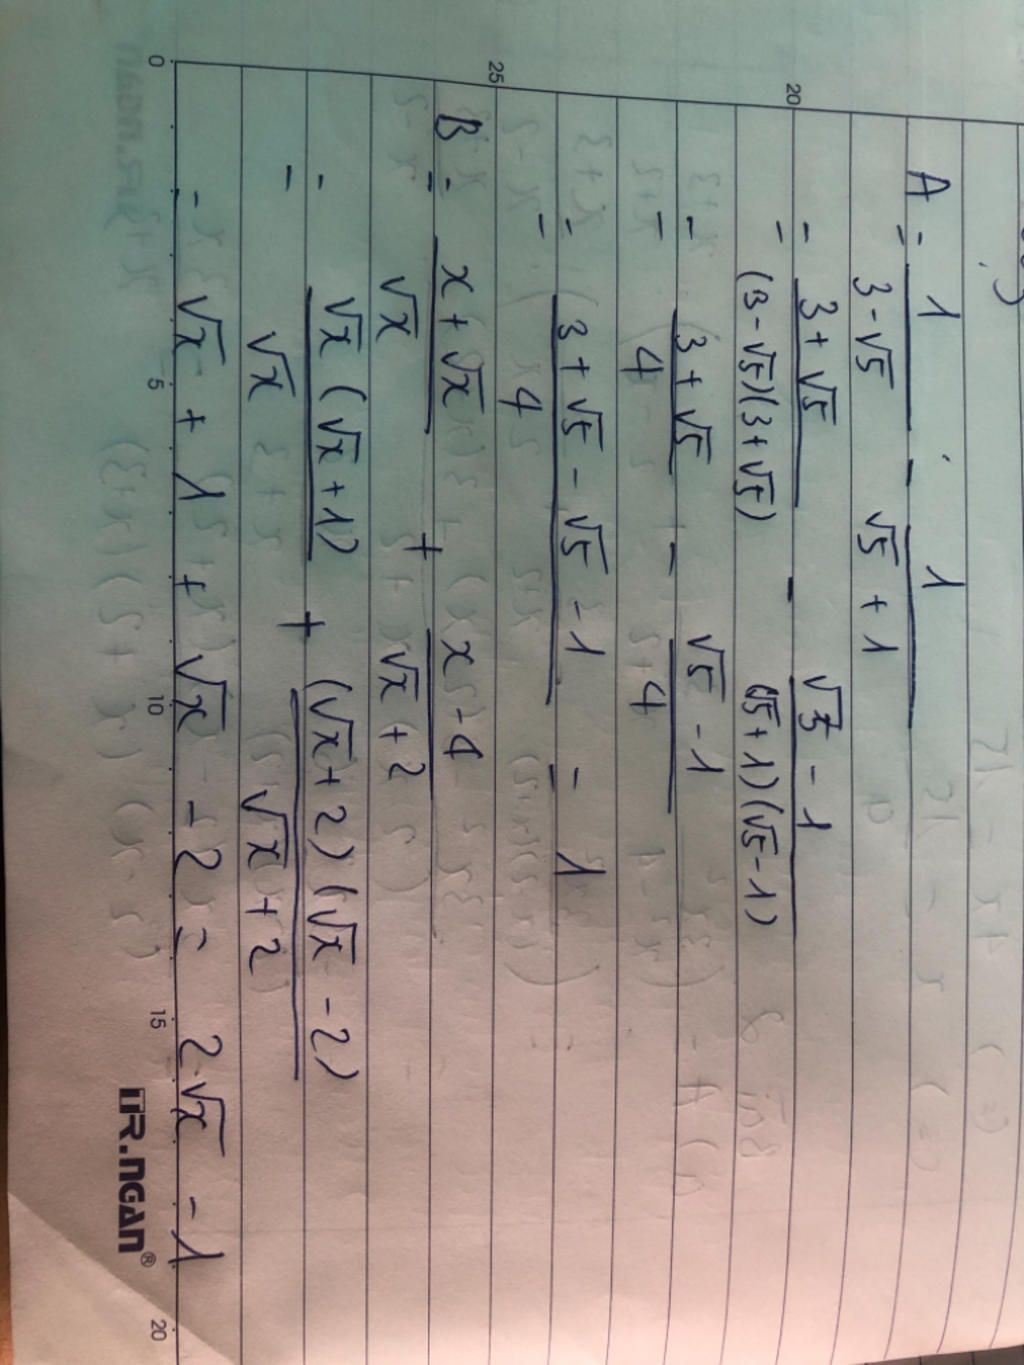 A = 1/(3-√5) - 1/(√5+1)
= (3+√5)/((3-√5)(3+√5)) - (√5-1)/((√5+1)(√5-1))
= (3+√5)/4 - (√5-1)/4
= (3+√5-√5-1)/4 = 1
B = (x+√x)/√x + (x-4)/(√x+2)
= √x(√x+1)/√x + (√x+2)(√x-2)/(√x+2)
= √x + 1 + √x - 2 = 2√x - 1
0 5 10 15 20
20
25
TR.NGAN®